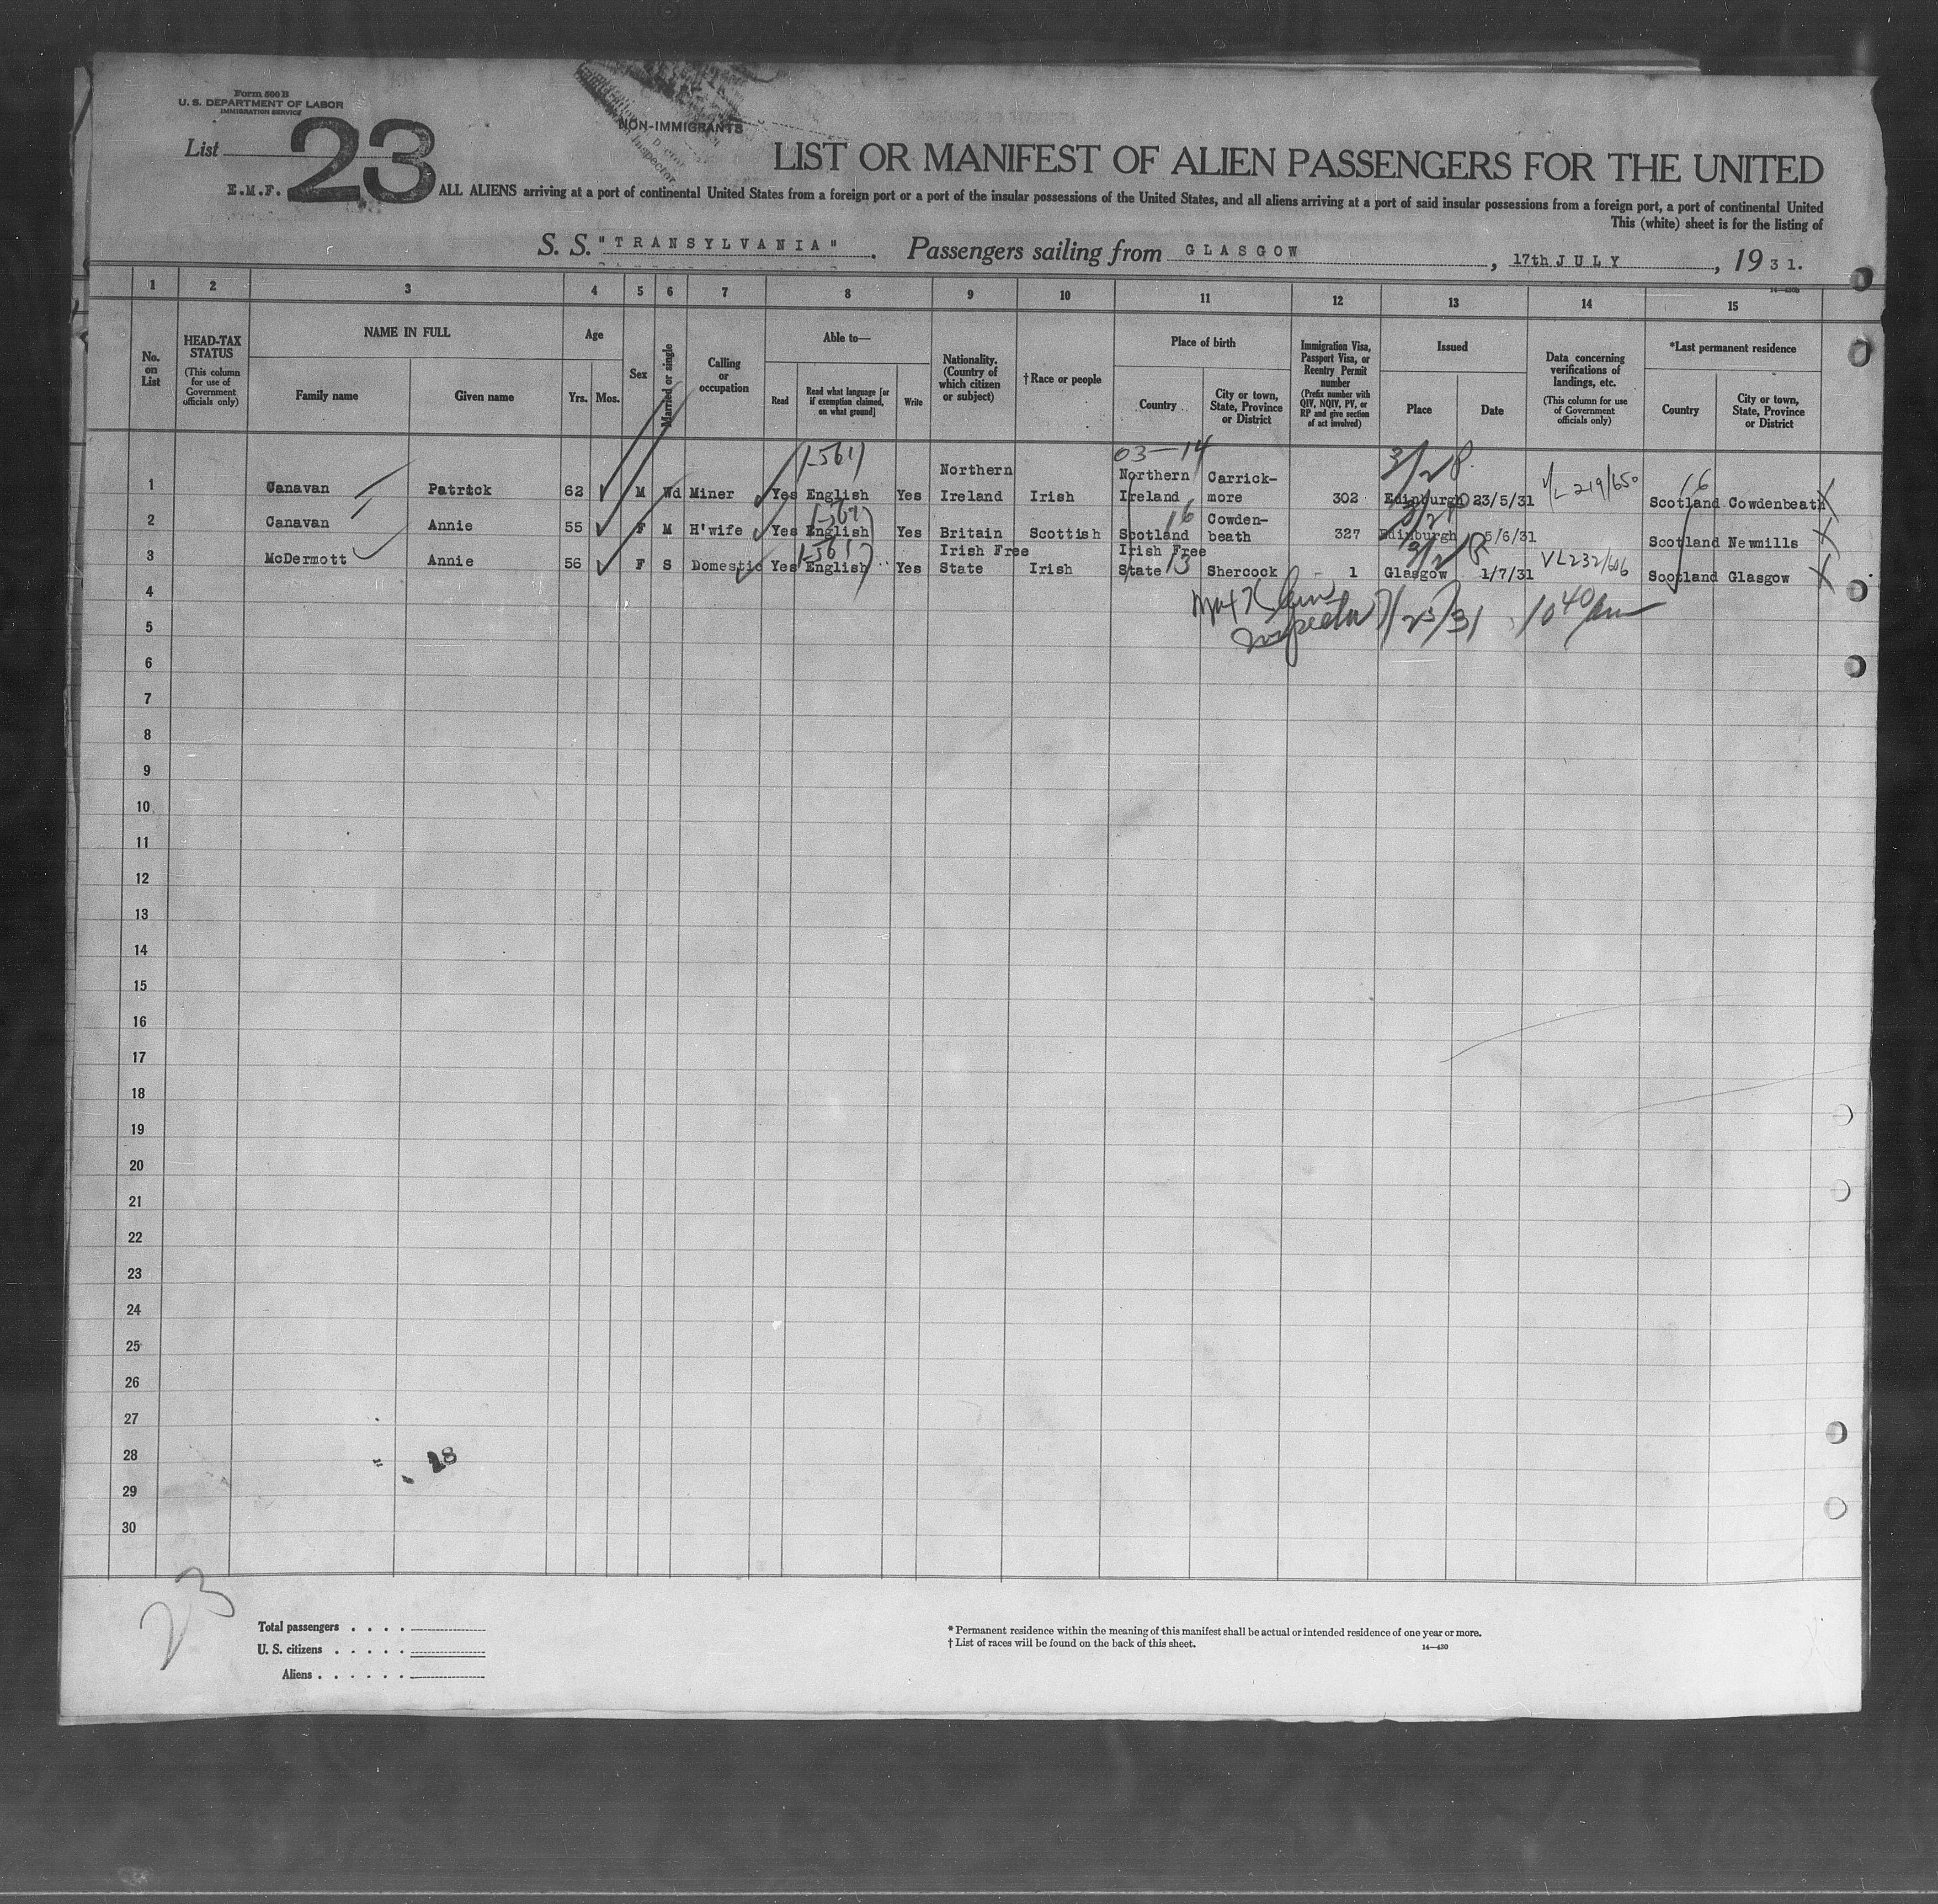 Form 500 B
U. S. DEPARTMENT OF LABOR
IMMIGRATION SERVICE
List 23
E.M.F.
NON-IMMIGRANTS
Inspector
LIST OR MANIFEST OF ALIEN PASSENGERS FOR THE UNITED
ALL ALIENS arriving at a port of continental United States from a foreign port or a port of the insular possessions of the United States, and all aliens arriving at a port of said insular possessions from a foreign port, a port of continental United
This (white) sheet is for the listing of
S. S. "TRANSYLVANIA". Passengers sailing from GLASGOW, 17th JULY, 1931.
1 2 3 4 5 6 7 8 9 10 11 12 13 14 15
14-430b
No. on List
HEAD-TAX STATUS (This column for use of Government officials only)
NAME IN FULL
Family name
Given name
Age
Yrs. Mos.
Sex
Married or single
Calling or occupation
Able to—
Read
Read what language [or if exemption claimed, on what ground]
Write
Nationality. (Country of which citizen or subject)
†Race or people
Place of birth
Country
City or town, State, Province or District
Immigration Visa, Passport Visa, or Reentry Permit number (Prefix number with QIV, NQIV, PV, or RP and give section of act involved)
Issued
Place
Date
Data concerning verifications of landings, etc. (This column for use of Government officials only)
*Last permanent residence
Country
City or town, State, Province or District
03-14
3/2 R
1 Canavan Patrick 62 M Wd Miner Yes English Yes Northern Ireland Irish Northern Ireland Carrick-more 302 Edinburgh 23/5/31 V/L 219/650 Scotland Cowdenbeath X
16
16
2 Canavan Annie 55 F M H'wife Yes English Yes Britain Scottish Scotland Cowden-beath 327 Edinburgh 5/6/31 Scotland Newmills X
3 McDermott Annie 56 F S Domestic Yes English Yes Irish Free State Irish Irish Free State 13 Shercock 1 Glasgow 1/7/31 VL232/606 Scotland Glasgow X
4
Inspector 7/25/31 10 40 am
5
6
7
8
9
10
11
12
13
14
15
16
17
18
19
20
21
22
23
24
25
26
27
28
18
29
30
23
Total passengers . . . .
U. S. citizens . . . . .
Aliens . . . . . .
* Permanent residence within the meaning of this manifest shall be actual or intended residence of one year or more.
† List of races will be found on the back of this sheet.
14-430